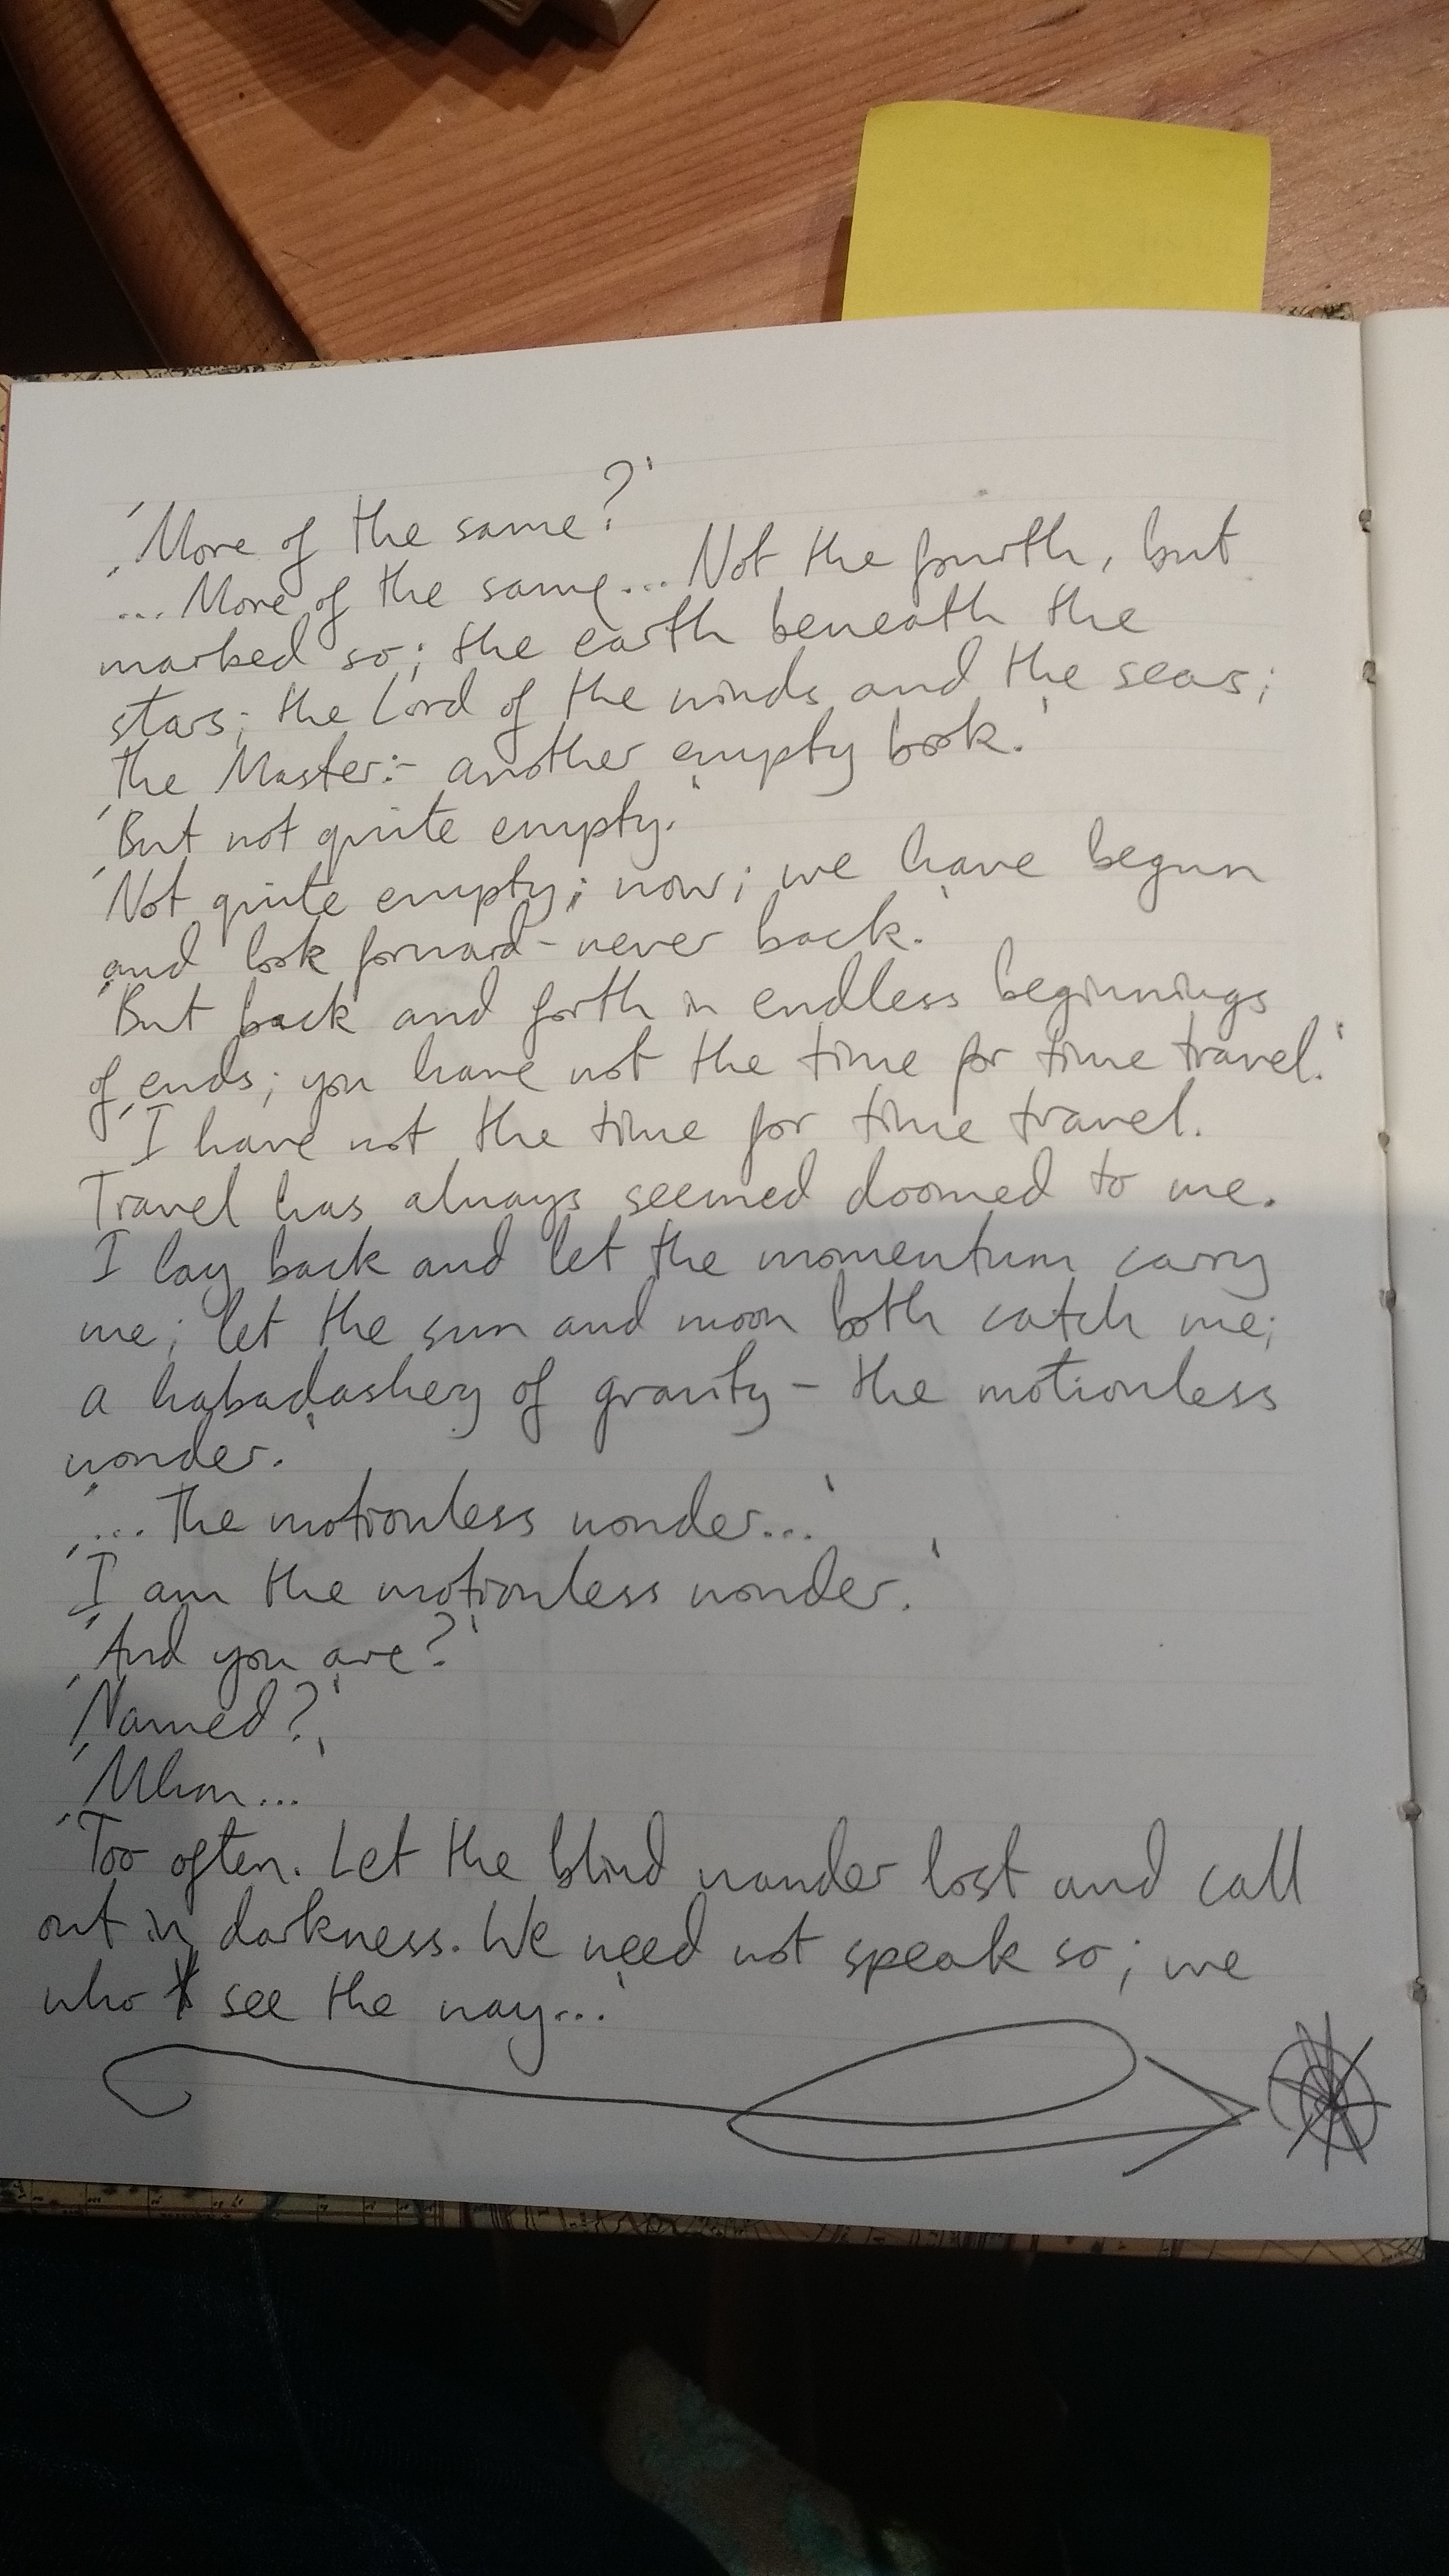 'More of the same?'
'...More of the same... Not the fourth, but
marked so; the earth beneath the
stars; the Lord of the winds and the seas;
the Master:- another empty book.'
'But not quite empty.'
'Not quite empty; now; we have begun
and look forward - never back.'
'But back and forth in endless beginnings
of ends; you have not the time for time travel.'
'I have not the time for time travel.
Travel has always seemed doomed to me.
I lay back and let the momentum carry
me; let the sun and moon both catch me;
a habadashery of gravity - the motionless
wonder.'
'... The motionless wonder...'
'I am the motionless wonder.'
'And you are?'
'Named?'
'Mhm...'
'Too often. Let the blind wander lost and call
out in darkness. We need not speak so; we
who see the way...'